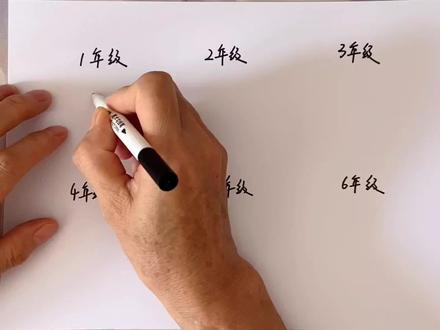 1年级 2年级 3年级
4年 年级 6年级